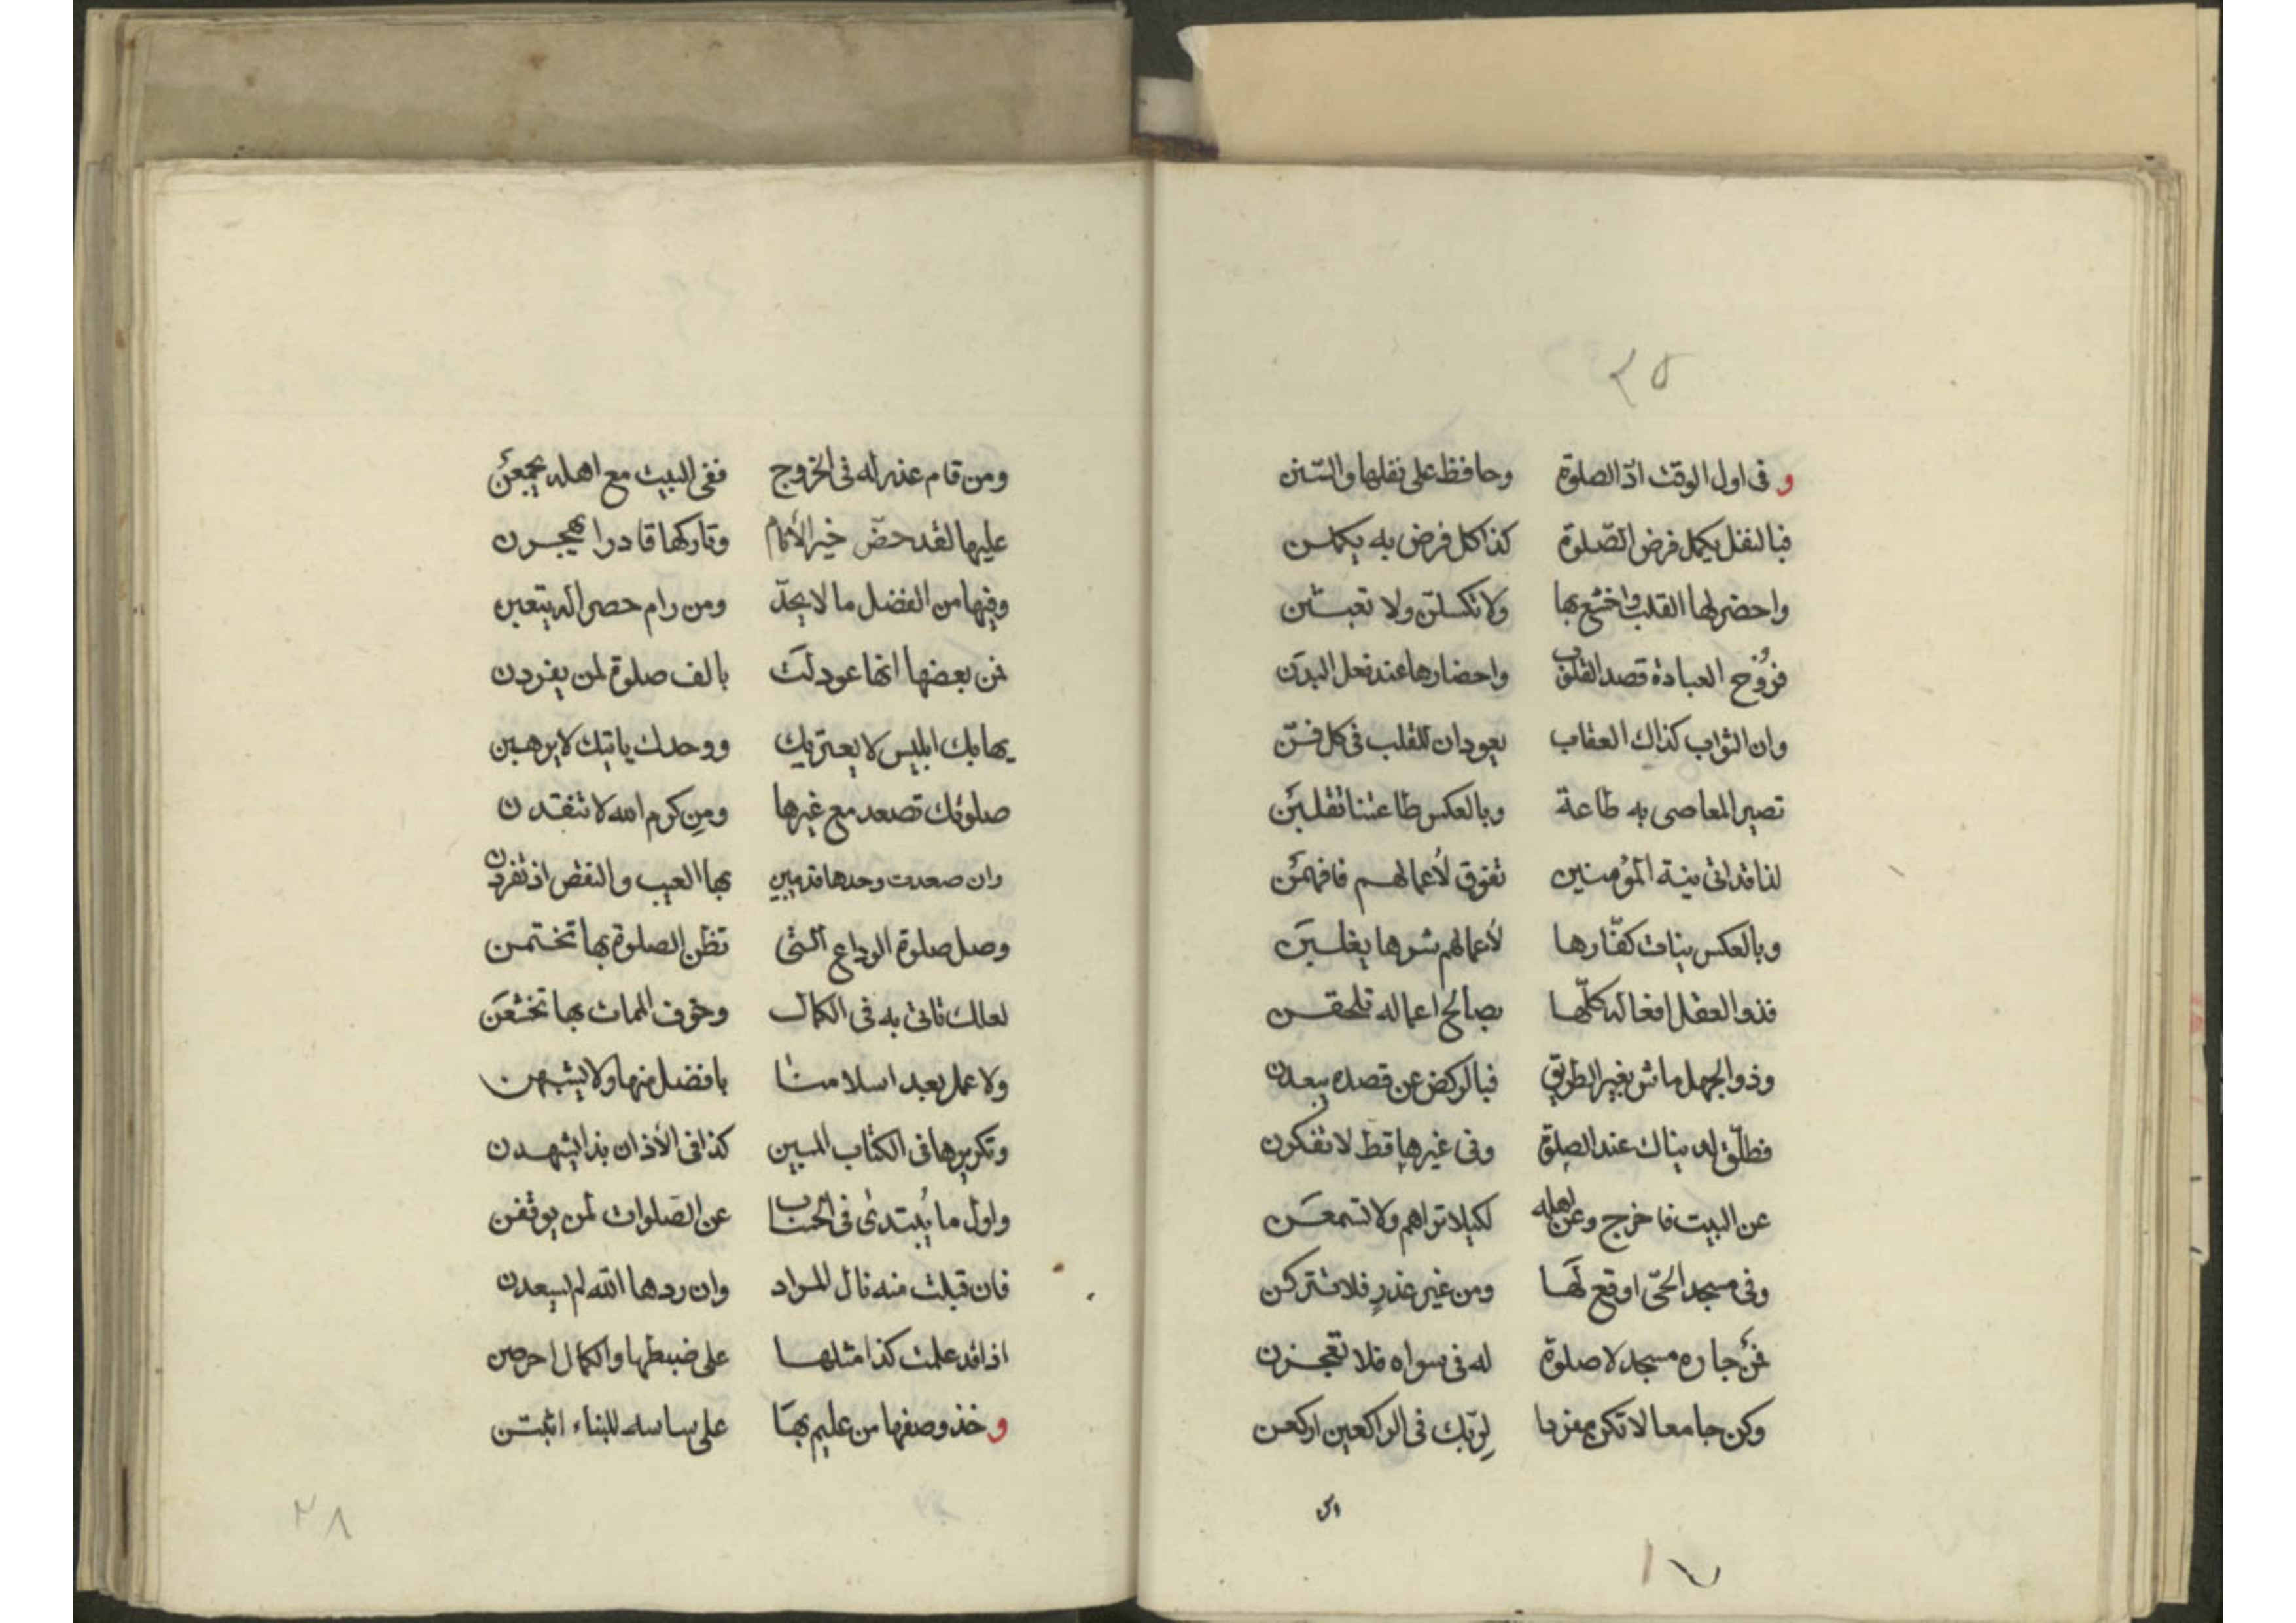 ٢٥
و فى اول الوقت ادّ الصلوة وحافظ على نفلها والسّنن
فبالنفل يكمل فرض الصّلوة كذا كل فرض به يكملن
واحضر لها القلب واخشع بها ولا تكسلنّ ولا تعبثن
فرُوح العبادة قصد القلوب واحضارها عند فعل البدن
وان الثواب كذاك العقاب يعودان للقلب فى كل فنّ
تصير المعاصى به طاعة وبالعكس طاعتنا تقلبن
لذا قد اتى نية المؤمنين تفوق لأعمالهم فافهمن
وبالعكس نيات كفّارها لأعمالهم شرها يغلبن
فذو العقل افعاله كلّها بصالح اعماله تلحقن
وذو الجهل ماش بغير الطريق فبالركض عن قصده يبعدن
فطلّق له دنياك عند الصلوة وفى غيرها قط لا تفكرن
عن البيت فاخرج وعن اهله لكيلا تراهم ولا تسمعن
وفى مسجد الحّى اوقع لها ومن غير عذرٍ فلا تتركن
فمن جاره مسجد لا صلوة له فى سواه فلا تعجزن
وكن جامعا لا تكن مفردا لِربّك فى الراكعين اركعن
١٧
ومن قام عذر له فى الخروج ففى البيت مع اهله يجمعن
عليها لقد حضّ خير الأنام وتاركها قادرا يهجرن
وفيها من الفضل ما لا يحدّ ومن رام حصرا له يتعبن
فمن بعضها انها عودلت بالف صلوة لمن يفردن
يهابك ابليس لا يعتريك ووحدك ياتيك لا يرهبن
صلوتك تصعد مع غيرها ومن كرم الله لا تنقدن
وان صعدت وحدها قد يبين بها العيب والنقص اذ تفردن
وصل صلوة الوداع التى تظن الصلوة بها تختمن
لعلك تاتى به فى الكمال وخوف الممات بها تخشعن
ولا عمل بعد اسلامنا بافضل منها ولا يشبهن
وتكريرها فى الكتاب المبين كذا فى الأذان بذا يشهدن
واول ما يُبتدىٰ فى الحساب عن الصّلوات لمن يوقفن
فان قبلت منه نال المراد وان ردها الله لم يسعدن
اذا قد علمت كذا مثلها على ضبطها والكمال احرصن
و خذ وصفها من عليم بها على ساسه للبناء اثبتن
٢٨